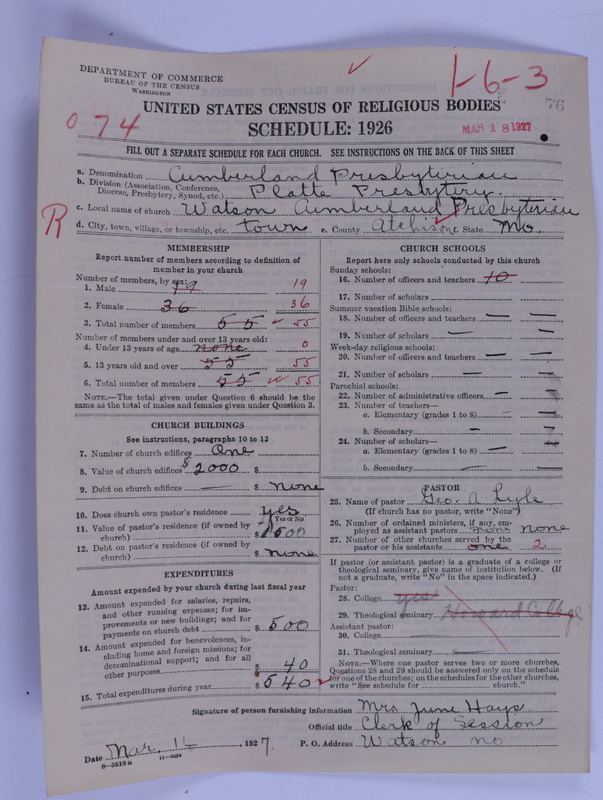 DEPARTMENT OF COMMERCE
BUREAU OF THE CENSUS
WASHINGTON
1-6-3
76
074
UNITED STATES CENSUS OF RELIGIOUS BODIES
SCHEDULE: 1926
MAR 18 1927
FILL OUT A SEPARATE SCHEDULE FOR EACH CHURCH. SEE INSTRUCTIONS ON THE BACK OF THIS SHEET
a. Denomination Cumberland Presbyterian
b. Division (Association, Conference, Diocese, Presbytery, Synod, etc.) Platte Presbytery.
R
c. Local name of church Watson Cumberland Presbyterian
d. City, town, village, or township, etc. town e. County Atchison f. State Mo.
MEMBERSHIP
Report number of members according to definition of member in your church
Number of members, by sex:
1. Male 19 19
2. Female 36 36
3. Total number of members 55 55
Number of members under and over 13 years old:
4. Under 13 years of age none 0
5. 13 years old and over 55 55
6. Total number of members 55 55
NOTE.—The total given under Question 6 should be the same as the total of males and females given under Question 3.
CHURCH BUILDINGS
See instructions, paragraphs 10 to 12
7. Number of church edifices One
8. Value of church edifices $2000 $
9. Debt on church edifices — $ none
10. Does church own pastor's residence yes
Yes or No
11. Value of pastor's residence (if owned by church) $ 1500
12. Debt on pastor's residence (if owned by church) $ none
EXPENDITURES
Amount expended by your church during last fiscal year
13. Amount expended for salaries, repairs, and other running expenses; for improvements or new buildings; and for payments on church debt $ 500
14. Amount expended for benevolences, including home and foreign missions; for denominational support; and for all other purposes $ 40
15. Total expenditures during year $ 540
CHURCH SCHOOLS
Report here only schools conducted by this church
Sunday schools:
16. Number of officers and teachers 10
17. Number of scholars
Summer vacation Bible schools:
18. Number of officers and teachers — —
19. Number of scholars — —
Week-day religious schools:
20. Number of officers and teachers — —
21. Number of scholars — —
Parochial schools:
22. Number of administrative officers —
23. Number of teachers—
a. Elementary (grades 1 to 8) — —
b. Secondary —
24. Number of scholars—
a. Elementary (grades 1 to 8) —
b. Secondary — —
PASTOR
25. Name of pastor Geo. A Lyle
(If church has no pastor, write "None")
26. Number of ordained ministers, if any, employed as assistant pastor none none
27. Number of other churches served by the pastor or his assistants one 2
If pastor (or assistant pastor) is a graduate of a college or theological seminary, give name of institution below. (If not a graduate, write "No" in the space indicated.)
Pastor:
28. College yes
29. Theological seminary Howard College
Assistant pastor:
30. College —
31. Theological seminary —
NOTE.—Where one pastor serves two or more churches, Questions 28 and 29 should be answered only on the schedule for one of the churches; on the schedules for the other churches, write "See schedule for church."
Signature of person furnishing information Mrs June Hays.
Official title Clerk of Session
Date Mar. 16, 1927. P. O. Address Watson Mo
6—3518a 11—9084